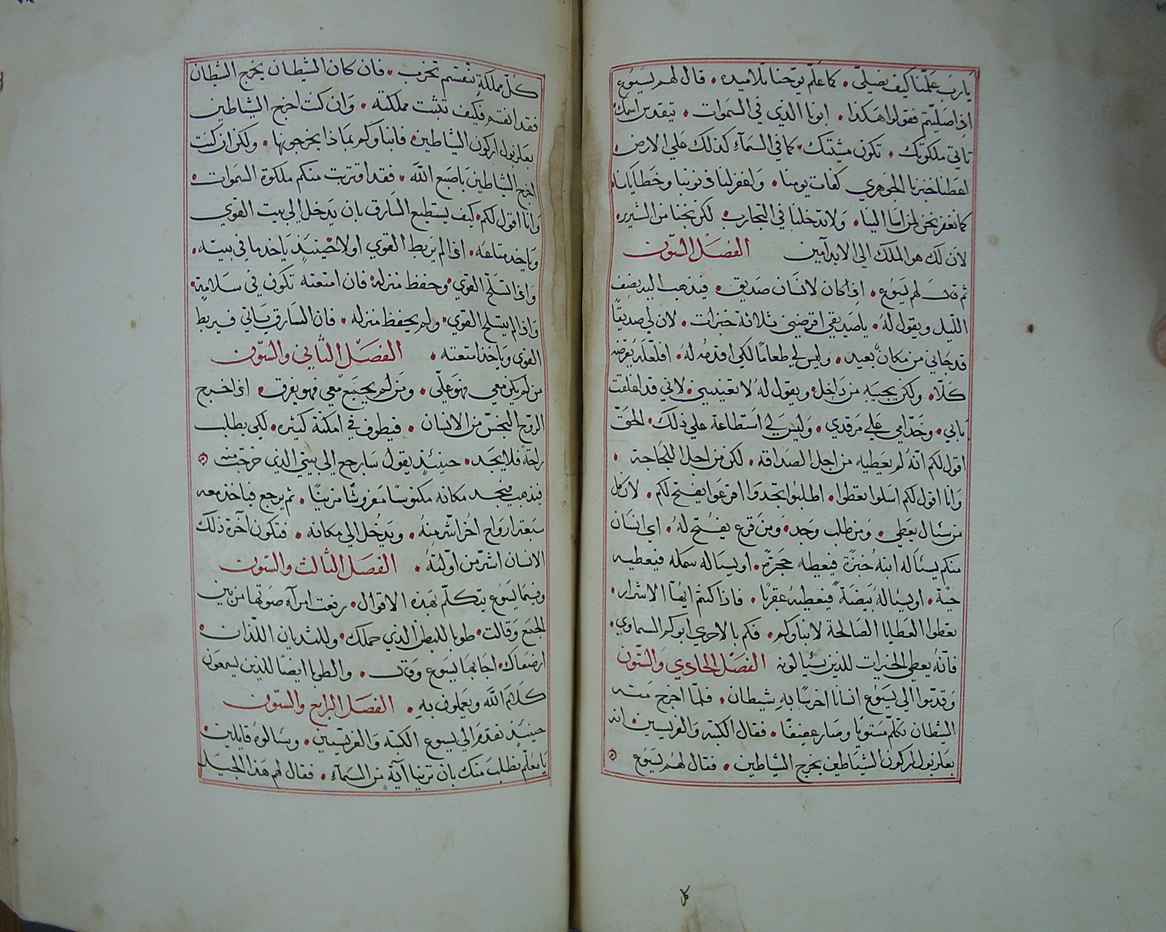 يارب علمنا كيف نصلي • كما علم يوحنا تلاميذه • قال لهم ليسوع
اذا صليتم فقولوا هكذا • ابونا الذي في السموات • يتقدس اسمك
تاتي ملكوتك • تكون مشيتك • كما في السمآء كذلك علي الارض •
اعطنا خبزنا الجوهري كفات يومنا • واغفر لنا ذنوبنا وخطايانا •
كما نغفر نحن لمن اسا الينا • ولا تدخلنا في التجارب • لكن نجنا من الشرير •
لان لك هو الملك الي الابد آمين الفصل الستون
ثم قال لهم ليسوع • اذا كان لانسان صديق • فيذهب اليه نصف
الليل ويقول له • ياصديقي اقرضني ثلاثة خبزات • لان لي صديقا
قد جاني من مكان بعيد • وليس لي طعاما لكي اقدمه له •
كلا • ولكن يجيبه من داخل • ويقول له لا تعنيني • لاني قد اغلقت
بابي • وخدامي علي مرقدي • وليس لي استطاعة علي ذلك • الحق
اقول لكم انه لم يعطيه من اجل الصداقة • لكن من اجل اللجاجة •
وانا اقول لكم اسلوا تعطوا • اطلبوا تجدوا افرعوا يفتح لكم • لان كل
من سيال يعطي • ومن طلب وجد • ومن قرع يفتح له • اي انسان
منكم يسئاله ابنه خبزة فيعطه حجرة • او يساله سمكه فيعطيه
حية • او يساله بيضة فيعطيه عقربا • فاذا كنتم ايضا الاشرار •
تعطوا العطايا الصالحة لابناوكم • فكم بالاحري ابوكم السماوي •
فانه يعطي الخيرات للذين سيالونه الفصل الحادي والستون
وقدموا الي ليسوع انسانا اخرسا به شيطان • فلما اخرج منه
الشطان تكلم مستويا وصار عفيفا • فقال الكتبه والفريسيين انه
بعلزبول اركون الشياطين يخرج الشياطين • فقال لهم ليسوع
كل
كل مملكة تنقسم تخرب • فان كان الشطان يخرج الشطان
فقد انقسم فكيف تثبت مملكته • وان كنت اخرج الشياطين
بعلزبول اركون الشاطين • فابناوكم بماذا يخرجونها • ولكن ان كنت
اخرج الشاطين باصبع الله • فقد اقتربت منكم ملكوة السموات •
وانا اقول لكم • كيف يستطيع السارق بان يدخل الي بيت القوي
وياخد متلعة • اذا لم يربط القوي اولا حينيد ياخد ما في بيته •
واذا تسلح القوي • وحفظ منزله • فان امتعته تكون في سلامة •
واذا لم يتسلح القوي • ولم يحفظ منزله • فان السارق ياتي فيربط
القوي وياخذ امتعته • الفصل الثاني والستون
من لم يكن معي فهو علي • ومن لم يجمع معي فهو يفرق • اذا خرج
الروح النجس من الانسان • فيطوف في امكنة كثيره • لكي يطلب
راحة فلا يجد • حينيد يقول سارجع الي بيتي الذي خرجت منه
فيذهب فيجد مكانه مكنوسا مفروشا مزينا • ثم يرجع فياخذ معه
سبعة ارواح اخر اشر منه • ويدخل الي مكانه • فتكون آخرة ذلك
الانسان اشر من اولته • الفصل الثالث والستون
وبينما ليسوع يتكلم بهذه الاقوال • رفعت امرآه صوتها من بين
الجمع وقالت • طوبا للبطن الذي حملك • وللثديان اللذان •
ارضعاك • اجابها ليسوع وقال • والطوبا ايضا للذين ليسمعون
كلام الله ويعملون به • الفصل الرابع والستون
حينيد تقدم الي ليسوع الكتبه والفريسيين • وسالوه قايلين •
يامعلم نطلب منك بان ترينا آية من السمآء • فقال لهم هذا الجيل